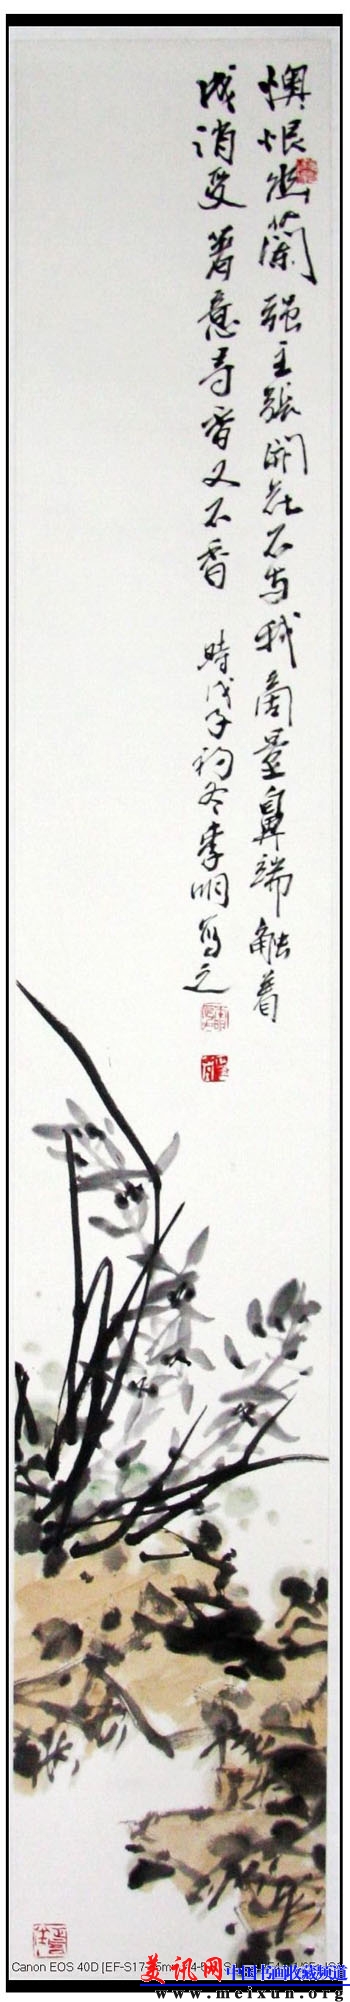 懊恨幽蘭强主張開花不与我商量鼻端触着
成消受着意寻香又不香
時戊子初冬李明写之
Canon EOS 40D [EF-S17-
美讯网 中国书画收藏频道
www.meixun.org